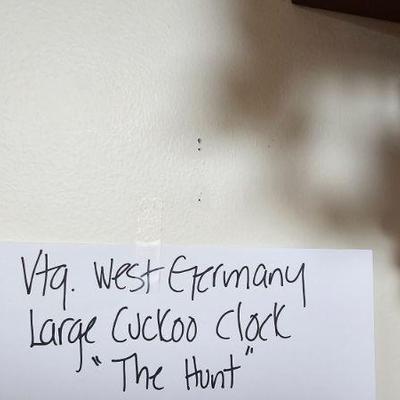 Vtg. West Germany
Large Cuckoo Clock
"The Hunt"